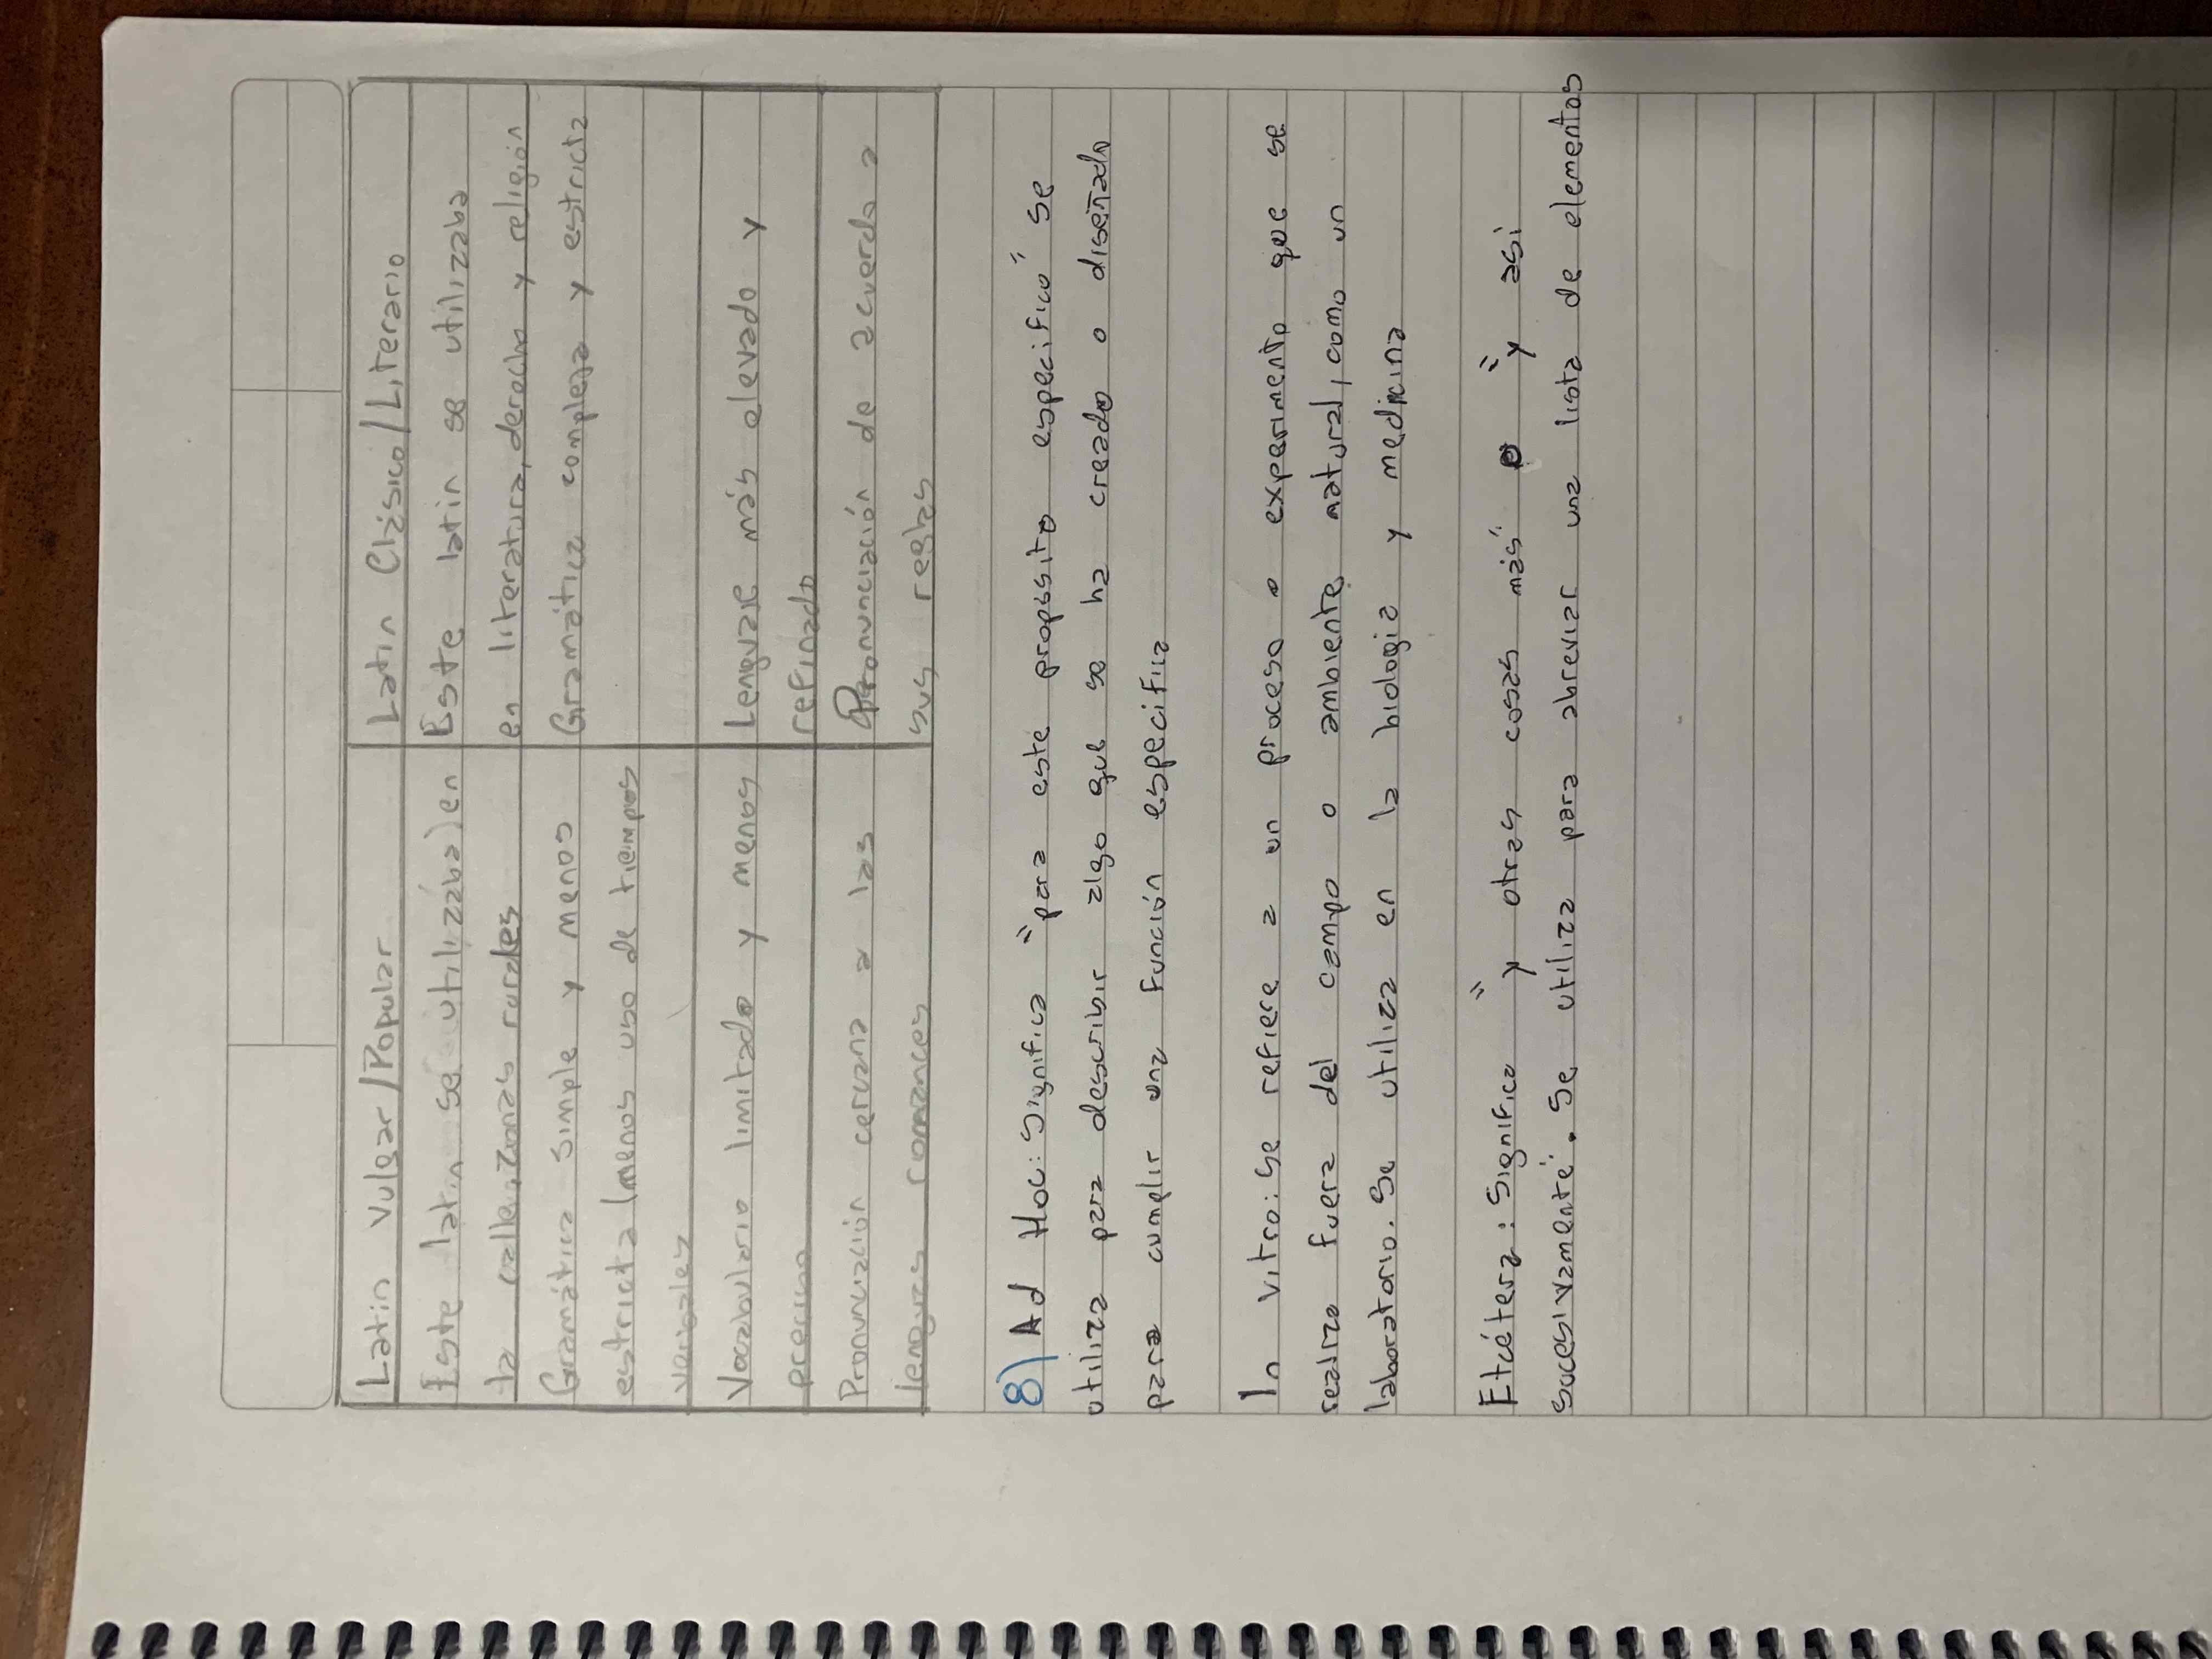 Latin Vulgar/Popular
Latin Clásico/Literario
Este latin se utilizaba en
la calle, zonas rurales
Este latin se utilizaba
en literatura, derecho y religión
Gramática simple y menos
estricta (menos uso de tiempos
verbales
Gramática compleja y estricta
Vocabulario limitado y menos
preciso
Lenguaje más elevado y
refinado
Pronunciación cercana a las
lenguas romances
Pronunciación de acuerdo a
sus reglas
8) Ad Hoc: Significa "para este proposito especifico" se
utiliza para describir algo que se ha creado o diseñado
para cumplir una función especifica
In vitro: Se refiere a un proceso o experimento que se
realiza fuera del campo o ambiente natural, como un
laboratorio. Se utiliza en la biologia y medicina
Etcétera: Significa "y otras cosas más" o "y asi
sucesivamente". Se utiliza para abreviar una lista de elementos